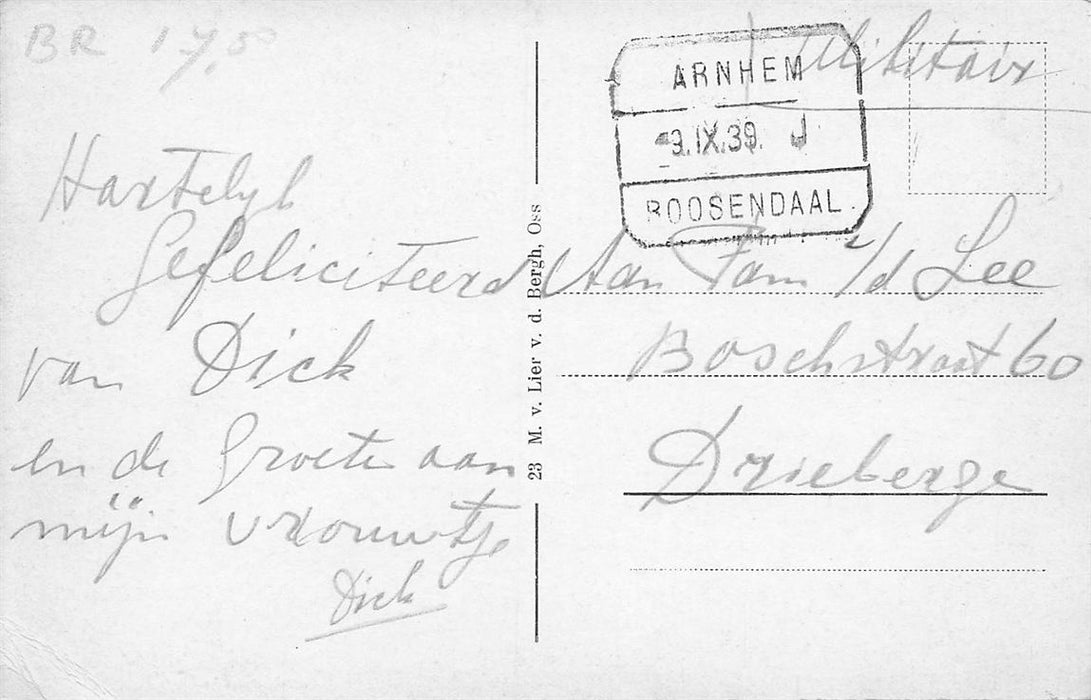 BR 17.50
Hartelyk
Gefeliciteerd
van Dick
en de Groeten aan
mijn vrouwtje
Dick
23 M. v. Lier v. d. Bergh, Oss
Militair
ARNHEM
9.IX.39. J
ROOSENDAAL
Aan Fam v/d Lee
Boschstraat 60
Drieberge